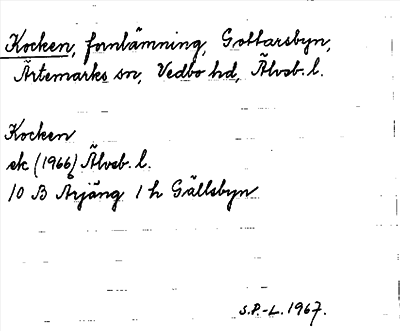 Kocken, fornlämning, Gottarsbyn,
Ärtemarks sn, Vedbo hd, Älvsb. l.
Kocken
ek (1966) Älvsb. l.
10 B Årjäng 1 h Gällsbyn
S.P.-L. 1967.